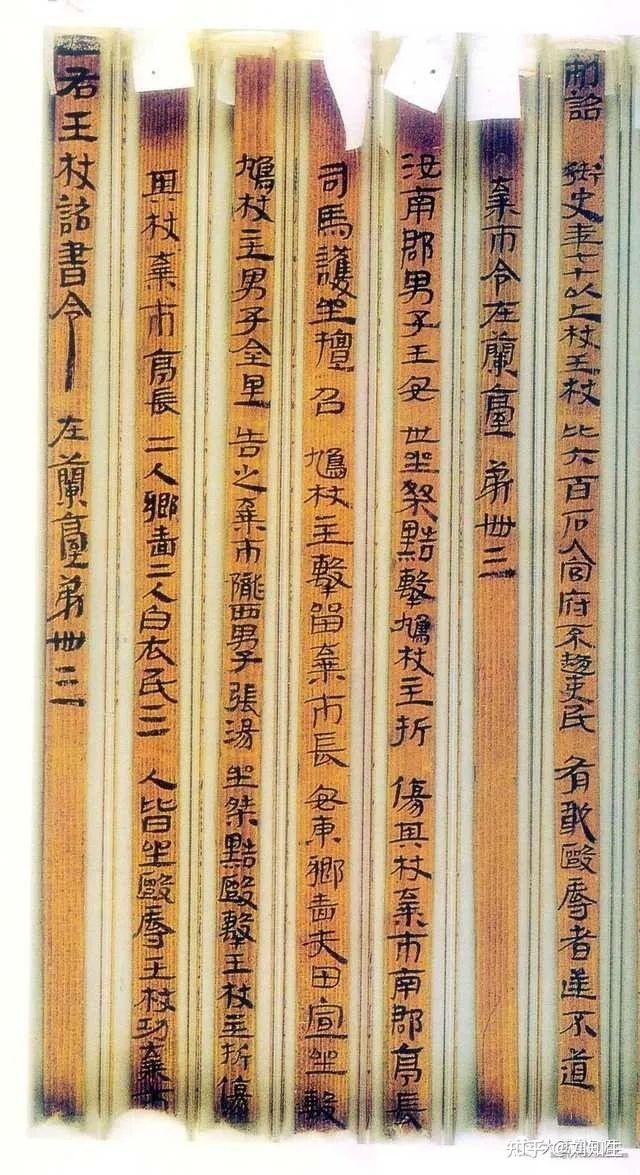 制詔 御史年七十以上杖王杖 比六百石入官府不趨吏民 有敢毆辱者逆不道
棄市令在蘭臺 第卌三
汝南郡男子王安 世坐桀黠擊鳩杖主折 傷其杖棄市南郡亭長
司馬護坐擅召 鳩杖主擊留棄市長 安東鄉嗇夫田宣坐毄
鳩杖主男子金里 告之棄市隴西男子張湯 坐桀黠毆擊王杖主折傷
其杖棄市亭長 二人鄉嗇二人白衣民三 人皆坐毆辱王杖功棄市
右王杖詔書令 在蘭臺第卌三
知乎